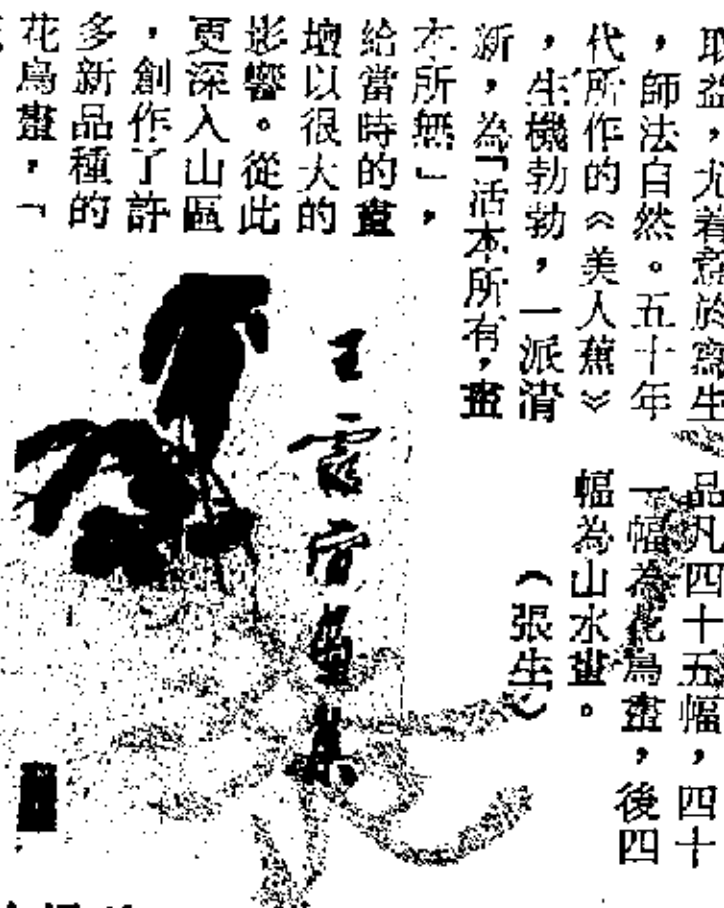 取益，尤着意於寫生
，師法自然。五十年
代所作的《美人蕉》
，生機勃勃，一派清
新，為「活本所有，畫
本所無」，
給當時的畫
壇以很大的
影響。從此
更深入山區
，創作了許
多新品種的
花鳥畫，「
品凡四十五幅，四十
一幅為花鳥畫，後四
幅為山水畫。
（張生）
王霞宙畫集